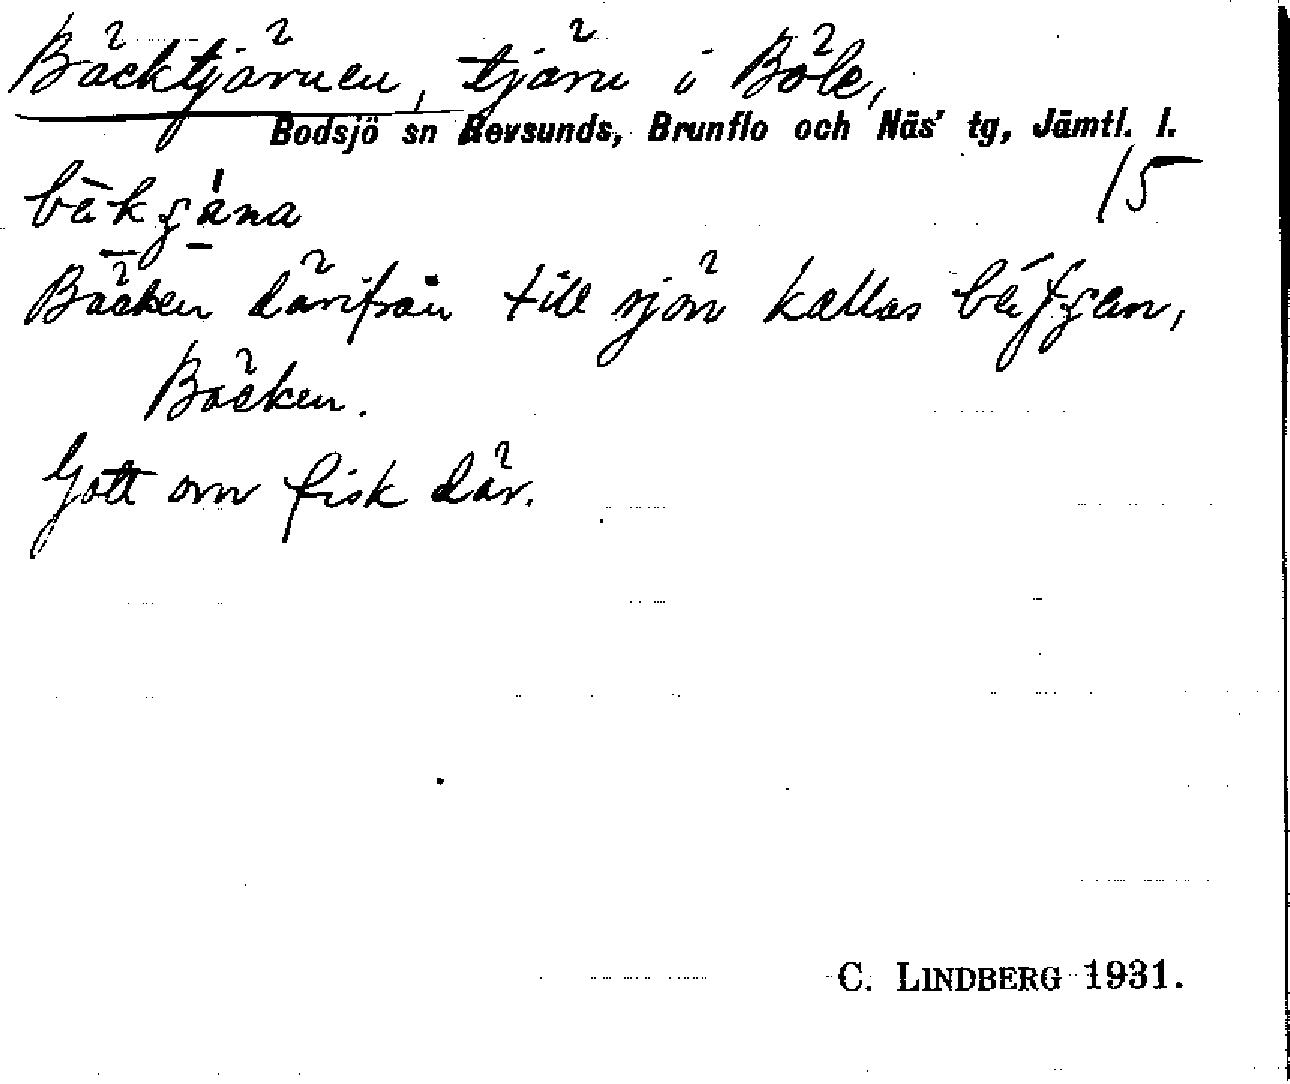 Bäcktjärnen, tjärn i Böle,
Bodsjö sn Revsunds, Brunflo och Näs' tg, Jämtl. l.
15
Bäcken därifrån till sjön kallas
Bäcken.
Gott om fisk där.
C. LINDBERG 1931.